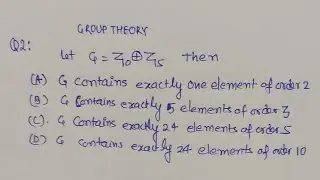 GROUP THEORY
Q2:
Let G = Z10 ⊕ Z15 Then
(A) G Contains exactly one element of order 2
(B) G Contains exactly 5 elements of order 3
(C). G Contains exactly 24 elements of order 5
(D) G Contains exactly 24 elements of order 10